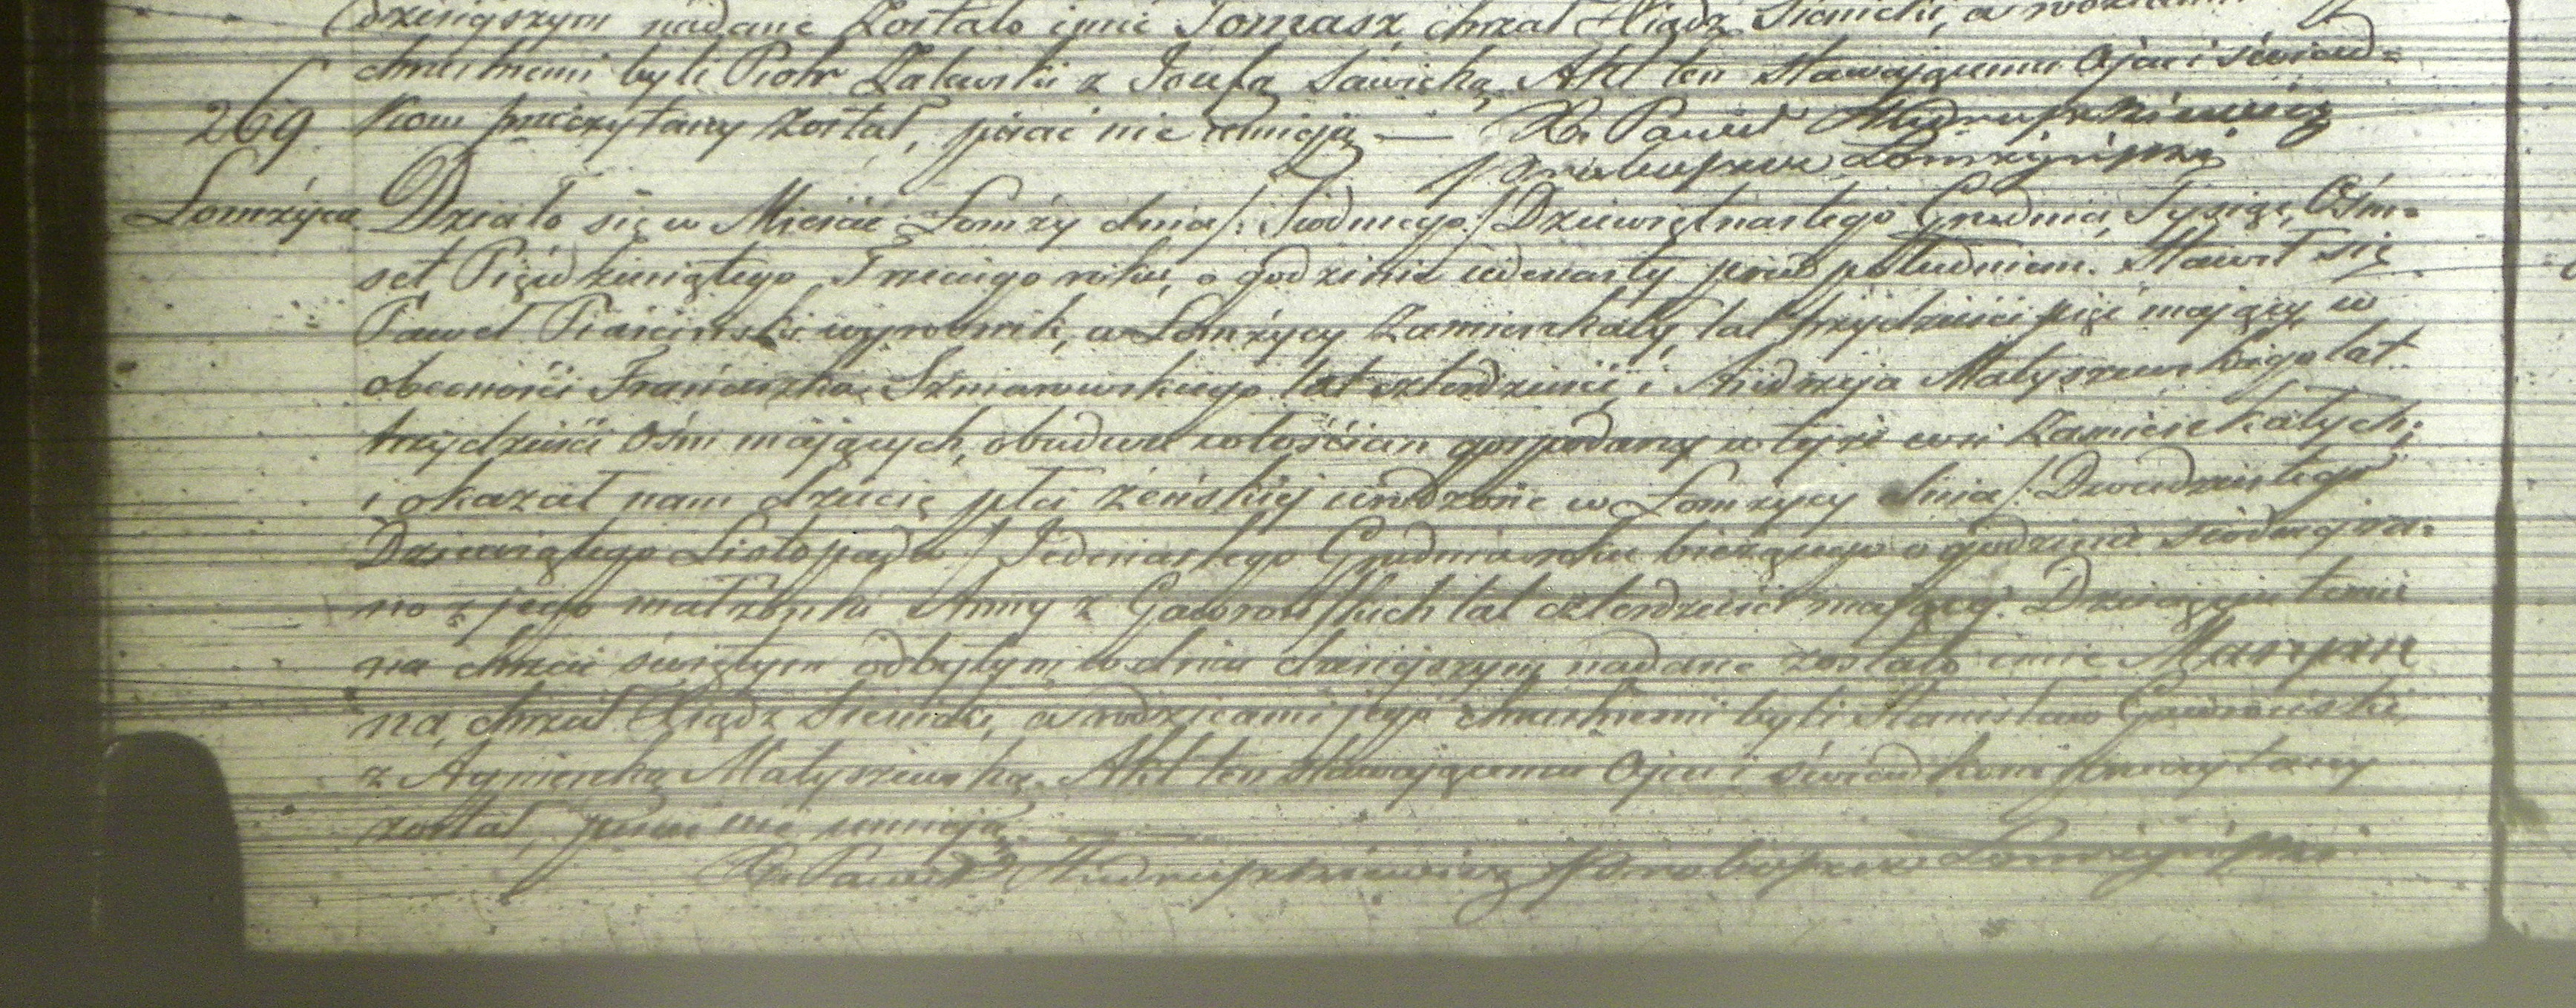 dzisiejszym nadane zostało imie Tomasz, chrzcił Xiądz Sienicki, a rodzicami
chrzestnemi byli Piotr Zalewski z Józefą Sawicką. Akt ten stawającemu Ojcu i świad=
269 kom przeczytany został, pisać nie umieją — X. Paweł
proboszcz Łomżyński
Łomżyca Działo się w Mieście Łomży dnia /: Siodmego :/ Dziewiętnastego Grudnia, Tysiąc, Ośm=
set Pięćdziesiątego Trzeciego roku, o godzinie jedenasty przed południem. Stawił się
Paweł wyrobnik, w Łomżycy zamieszkały, lat trzydzieści pięć mający w
obecności Franciszka Szmarowskiego lat czterdzieści, i Andrzeja Matyszewskiego lat
trzydzieści ośm mających, obudwu włościan gospodarzy w tejże wsi zamieszkałych;
i okazał nam dziecię płci żeńskiej urodzone w Łomżycy dnia /: Dwudziestego
Dziewiątego Listopada :/ Jedenastego Grudnia roku bieżącego o godzinie siodmej ra=
no z jego małżonki Anny z Gaworowskich lat czterdzieści mający. Dziecięciu temu
na chrzcie świętym odbytym w dniu dzisiejszym nadane zostało imie Maryan
na, chrzcił Xiądz Sienicki, a rodzicami jego chrzestnemi byli Stanisław
z Agnieszką Matyszewską. Akt ten stawającemu Ojcu i świadkom przeczytany
został, pisać nie umieją.
X. Paweł proboszcz Łomżyński